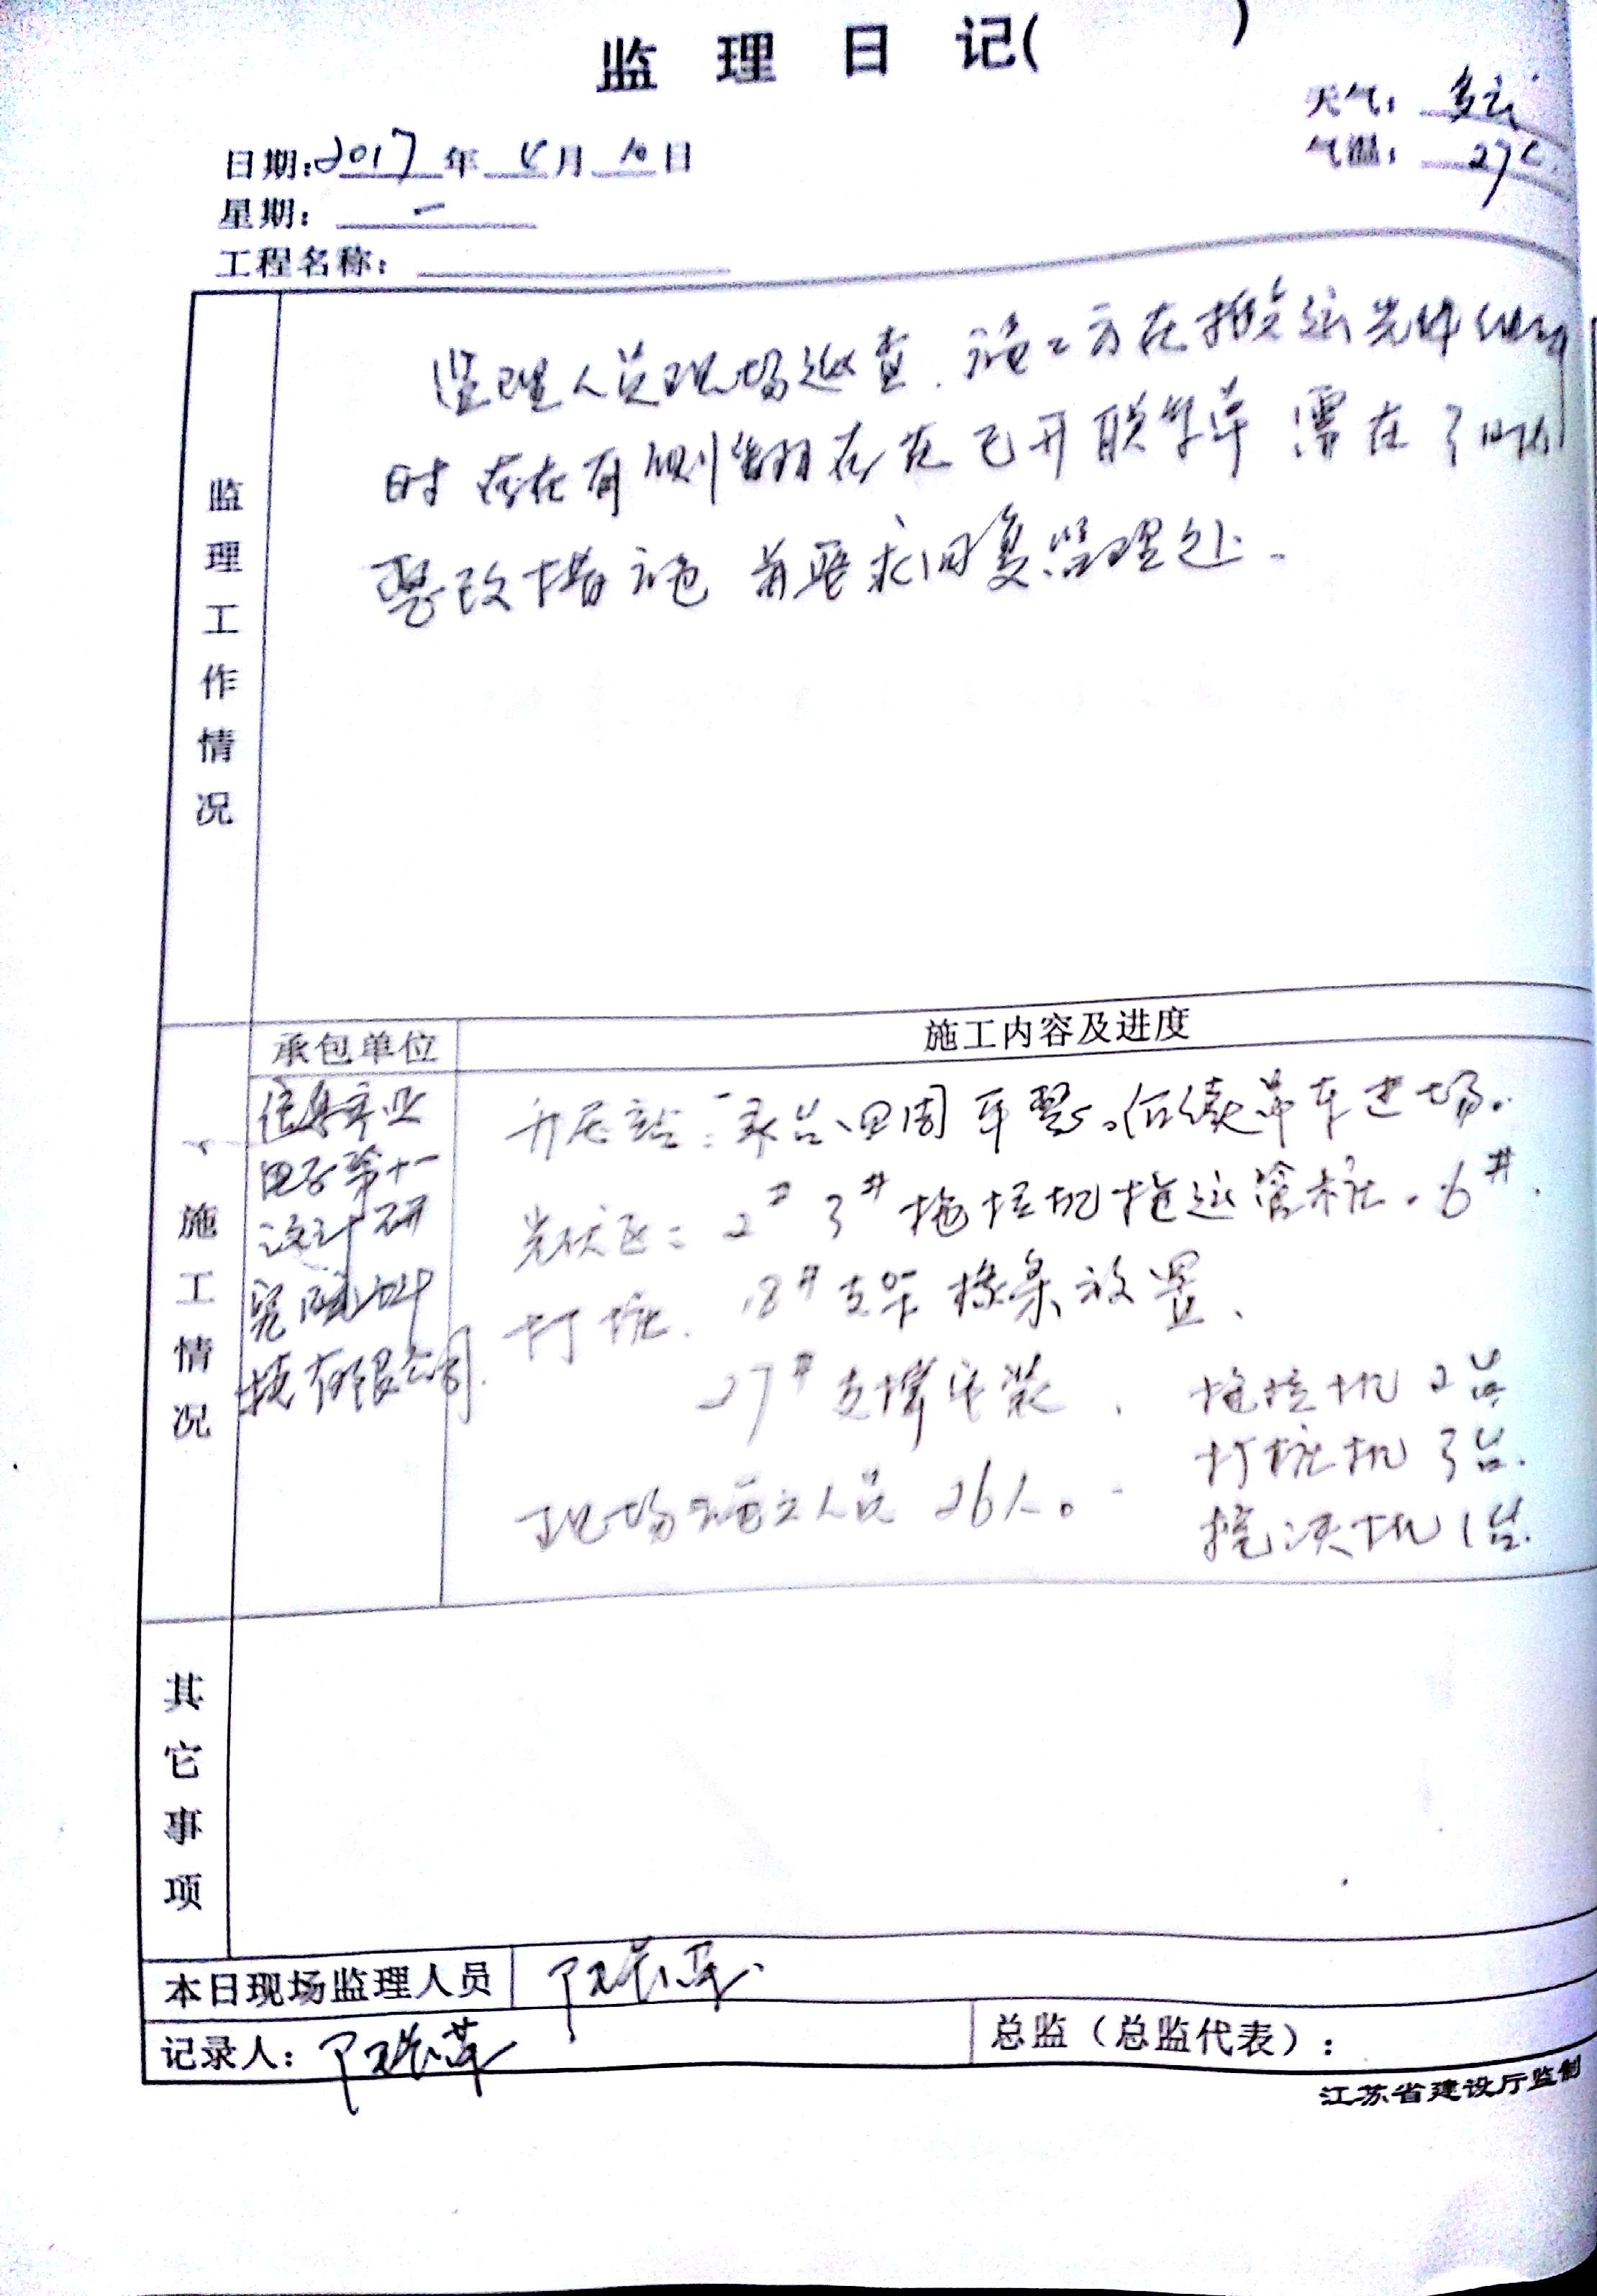 监 理 日 记( )
天气: 多云
日期:2017年 4月 10日
气温: 27℃
星期: 一
工程名称:
监理工作情况
监理人员现场巡查.施工方在搬运
时存在有侧翻 在已开联系单 需在
整改措施 并要求回复监理处.
承包单位
施工内容及进度
信息产业
电子第十一
设计研
究院科
技有限公司.
施工情况
升压站: 四周平整。后续吊车进场.
光伏区: 2# 3# 拖拉机拖运管桩. 6#.
打桩. 18#支架檩条放置、
27#支撑安装、 拖拉机2台
打桩机3台.
现场施工人员26人。 1台.
其它事项
本日现场监理人员
记录人:
总监(总监代表):
江苏省建设厅监制